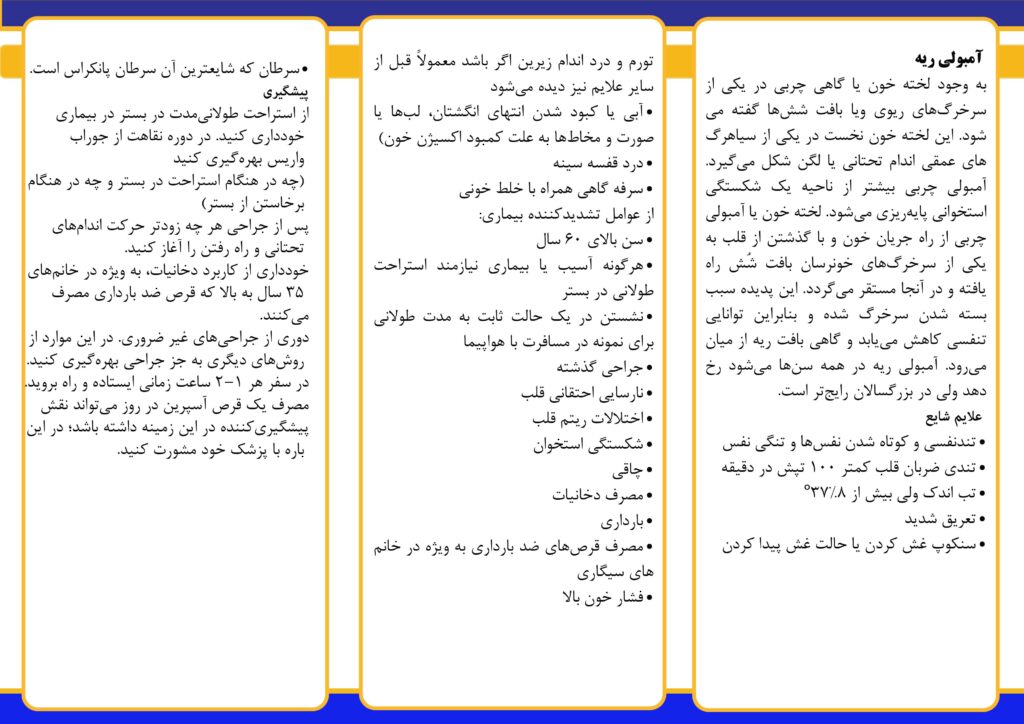 آمبولی ریه
به وجود لخته خون یا گاهی چربی در یکی از
سرخرگ‌های ریوی ویا بافت شش‌ها گفته می
شود. این لخته خون نخست در یکی از سیاهرگ
های عمقی اندام تحتانی یا لگن شکل می‌گیرد.
آمبولی چربی بیشتر از ناحیه یک شکستگی
استخوانی پایه‌ریزی می‌شود. لخته خون یا آمبولی
چربی از راه جریان خون و با گذشتن از قلب به
یکی از سرخرگ‌های خونرسان بافت شُش راه
یافته و در آنجا مستقر می‌گردد. این پدیده سبب
بسته شدن سرخرگ شده و بنابراین توانایی
تنفسی کاهش می‌یابد و گاهی بافت ریه از میان
می‌رود. آمبولی ریه در همه سن‌ها می‌شود رخ
دهد ولی در بزرگسالان رایج‌تر است.
علایم شایع
• تندنفسی و کوتاه شدن نفس‌ها و تنگی نفس
• تندی ضربان قلب کمتر ۱۰۰ تپش در دقیقه
• تب اندک ولی بیش از ۳۷٪.۸°
• تعریق شدید
• سنکوپ غش کردن یا حالت غش پیدا کردن
تورم و درد اندام زیرین اگر باشد معمولاً قبل از
سایر علایم نیز دیده می‌شود
• آبی یا کبود شدن انتهای انگشتان، لب‌ها یا
صورت و مخاط‌ها به علت کمبود اکسیژن خون)
• درد قفسه سینه
• سرفه گاهی همراه با خلط خونی
از عوامل تشدیدکننده بیماری:
• سن بالای ۶۰ سال
• هرگونه آسیب یا بیماری نیازمند استراحت
طولانی در بستر
• نشستن در یک حالت ثابت به مدت طولانی
برای نمونه در مسافرت با هواپیما
• جراحی گذشته
• نارسایی احتقانی قلب
• اختلالات ریتم قلب
• شکستگی استخوان
• چاقی
• مصرف دخانیات
• بارداری
• مصرف قرص‌های ضد بارداری به ویژه در خانم
های سیگاری
• فشار خون بالا
• سرطان که شایعترین آن سرطان پانکراس است.
پیشگیری
از استراحت طولانی‌مدت در بستر در بیماری
خودداری کنید. در دوره نقاهت از جوراب
واریس بهره‌گیری کنید
(چه در هنگام استراحت در بستر و چه در هنگام
برخاستن از بستر)
پس از جراحی هر چه زودتر حرکت اندام‌های
تحتانی و راه رفتن را آغاز کنید.
خودداری از کاربرد دخانیات، به ویژه در خانم‌های
۳۵ سال به بالا که قرص ضد بارداری مصرف
می‌کنند.
دوری از جراحی‌های غیر ضروری. در این موارد از
روش‌های دیگری به جز جراحی بهره‌گیری کنید.
در سفر هر ۱-۲ ساعت زمانی ایستاده و راه بروید.
مصرف یک قرص آسپرین در روز می‌تواند نقش
پیشگیری‌کننده در این زمینه داشته باشد؛ در این
باره با پزشک خود مشورت کنید.